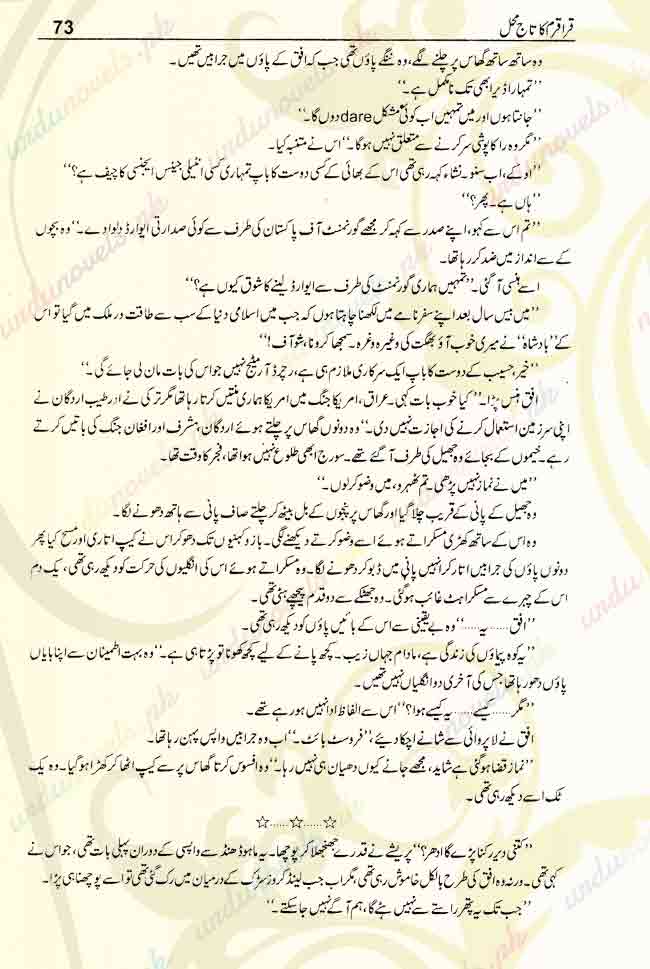 73
قراقرم کا تاج محل
وہ ساتھ ساتھ گھاس پر چلنے لگے، وہ ننگے پاؤں تھی جب کہ افق کے پاؤں میں جرابیں تھیں۔
’’تمہارا ڈیرا بھی تک نامکمل ہے۔‘‘
’’جانتا ہوں اور میں تمہیں اب کوئی مشکل dare دوں گا۔‘‘
’’مگر وہ راکاپوشی سر کرنے سے متعلق نہیں ہوگا۔‘‘ اس نے متنبہ کیا۔
’’اوکے، اب سنو۔ نشاء کہہ رہی تھی اس کے بھائی کے کسی دوست کا باپ تمہاری کسی انٹیلی جینس ایجنسی کا چیف ہے؟‘‘
’’ہاں ہے۔ پھر؟‘‘
’’تم اس سے کہو، اپنے صدر سے کہہ کر مجھے گورنمنٹ آف پاکستان کی طرف سے کوئی صدارتی ایوارڈ دلوا دے۔‘‘ وہ بچوں
کے سے انداز میں ضد کر رہا تھا۔
اسے ہنسی آ گئی۔ ’’تمہیں ہماری گورنمنٹ کی طرف سے ایوارڈ لینے کا شوق کیوں ہے؟‘‘
’’میں بیس سال بعد اپنے سفر نامے میں لکھنا چاہتا ہوں کہ جب میں اسلامی دنیا کے سب سے طاقت ور ملک میں گیا تو اس
کے ’’بادشاہ‘‘ نے میری خوب آؤ بھگت کی وغیرہ وغیرہ۔ سمجھا کرو نا، شو آف!‘‘
’’خیر، حسیب کے دوست کا باپ ایک سرکاری ملازم ہی ہے، رچرڈ آرمیٹیج نہیں جو اس کی بات مان لی جائے گی۔‘‘
افق ہنس پڑا۔ ’’کیا خوب بات کہی۔ عراق، امریکا جنگ میں امریکا ہماری منتیں کرتا رہا تھا مگر ترکی نے اور طیب اردگان نے
اپنی سرزمین استعمال کرنے کی اجازت نہیں دی۔‘‘ وہ دونوں گھاس پر چلتے ہوئے اردگان، مشرف اور افغان جنگ کی باتیں کرتے
رہے۔ خیموں کے بجائے وہ جھیل کی طرف آ گئے تھے۔ سورج ابھی طلوع نہیں ہوا تھا، فجر کا وقت تھا۔
’’میں نے نماز نہیں پڑھی۔ تم ٹھہرو، میں وضو کر لوں۔‘‘
وہ جھیل کے پانی کے قریب چلا گیا اور گھاس پر پنجوں کے بل بیٹھ کر چلتے صاف پانی سے ہاتھ دھونے لگا۔
وہ اس کے ساتھ کھڑی مسکراتے ہوئے اسے وضو کرتے دیکھنے لگی۔ بازو کہنیوں تک دھو کر اس نے کیپ اتاری اور مسح کیا پھر
دونوں پاؤں کی جرابیں اتار کر انہیں پانی میں ڈبو کر دھونے لگا۔ وہ مسکراتے ہوئے اس کی انگلیوں کی حرکت کو دیکھ رہی تھی، یک دم
اس کے چہرے سے مسکراہٹ غائب ہو گئی۔ وہ جھٹکے سے دو قدم پیچھے ہٹی تھی۔
’’افق...... یہ......‘‘ وہ بے یقینی سے اس کے بائیں پاؤں کو دیکھ رہی تھی۔
’’یہ کوہ پیماؤں کی زندگی ہے، مادام جہاں زیب۔ کچھ پانے کے لیے کچھ کھونا تو پڑتا ہی ہے۔‘‘ وہ بہت اطمینان سے اپنا بایاں
پاؤں دھو رہا تھا جس کی آخری دو انگلیاں نہیں تھیں۔
’’مگر...... کیسے...... یہ کیسے ہوا؟‘‘ اس سے الفاظ ادا نہیں ہو رہے تھے۔
افق نے لاپروائی سے شانے اچکا دیے، ’’فروسٹ بائٹ۔‘‘ اب وہ جرابیں واپس پہن رہا تھا۔
’’نماز قضا ہو گئی ہے شاید، مجھے جانے کیوں دھیان ہی نہیں رہا۔‘‘ وہ افسوس کرتا گھاس پر سے کیپ اٹھا کر کھڑا ہو گیا۔ وہ یک
ٹک اسے دیکھ رہی تھی۔
☆......☆......☆
’’کتنی دیر رکنا پڑے گا ادھر؟‘‘ پریشے نے قدرے جھنجھلا کر پوچھا۔ یہ ماہوڈھنڈ سے واپسی کے دوران پہلی بات تھی، جو اس نے
کہی تھی۔ ورنہ وہ افق کی طرح بالکل خاموش رہی تھی، مگر اب جب لینڈ کروزر سڑک کے درمیان میں رک گئی تھی تو اسے پوچھنا ہی پڑا۔
’’جب تک یہ پتھر راستے سے نہیں ہٹے گا، ہم آگے نہیں جا سکتے۔‘‘
urdunovels.pk